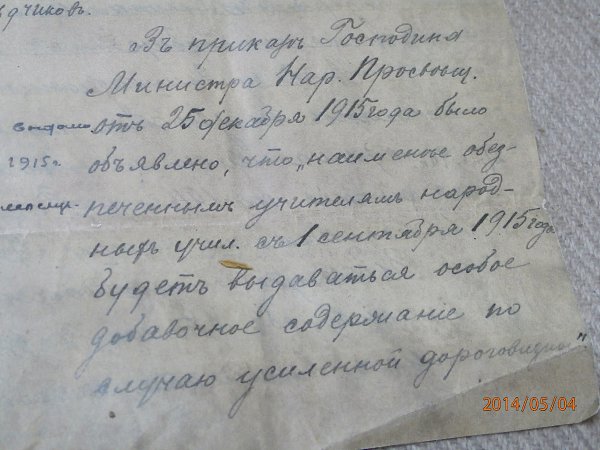 дчиковъ.
Въ приказѣ Господина
Министра Нар. Просвѣщ.
отъ 25 декабря 1915 года было
объявлено, что „наименѣе обез-
печеннымъ учителямъ народ-
ныхъ учил. съ 1 сентября 1915 года
будетъ выдаваться особое
добавочное содержание по
случаю усиленной дороговизны"
выдано
1915 г.
2014/05/04